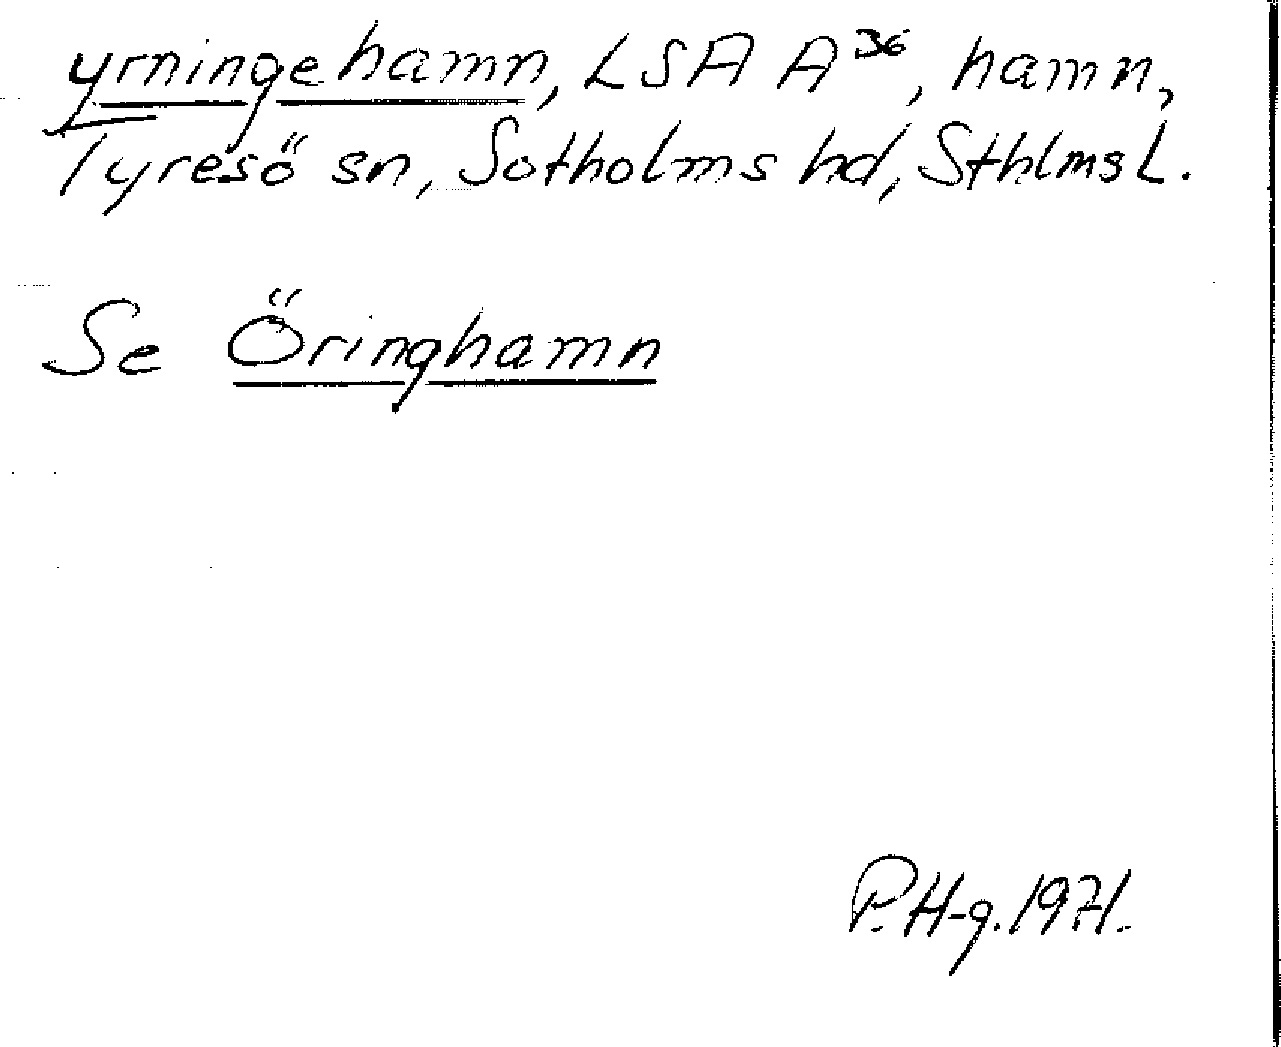 yrningehamn, LSA A³⁶, hamn,
Tyresö sn, Sotholms hd, Sthlms L.
Se Öringhamn
P. H-g. 1971.